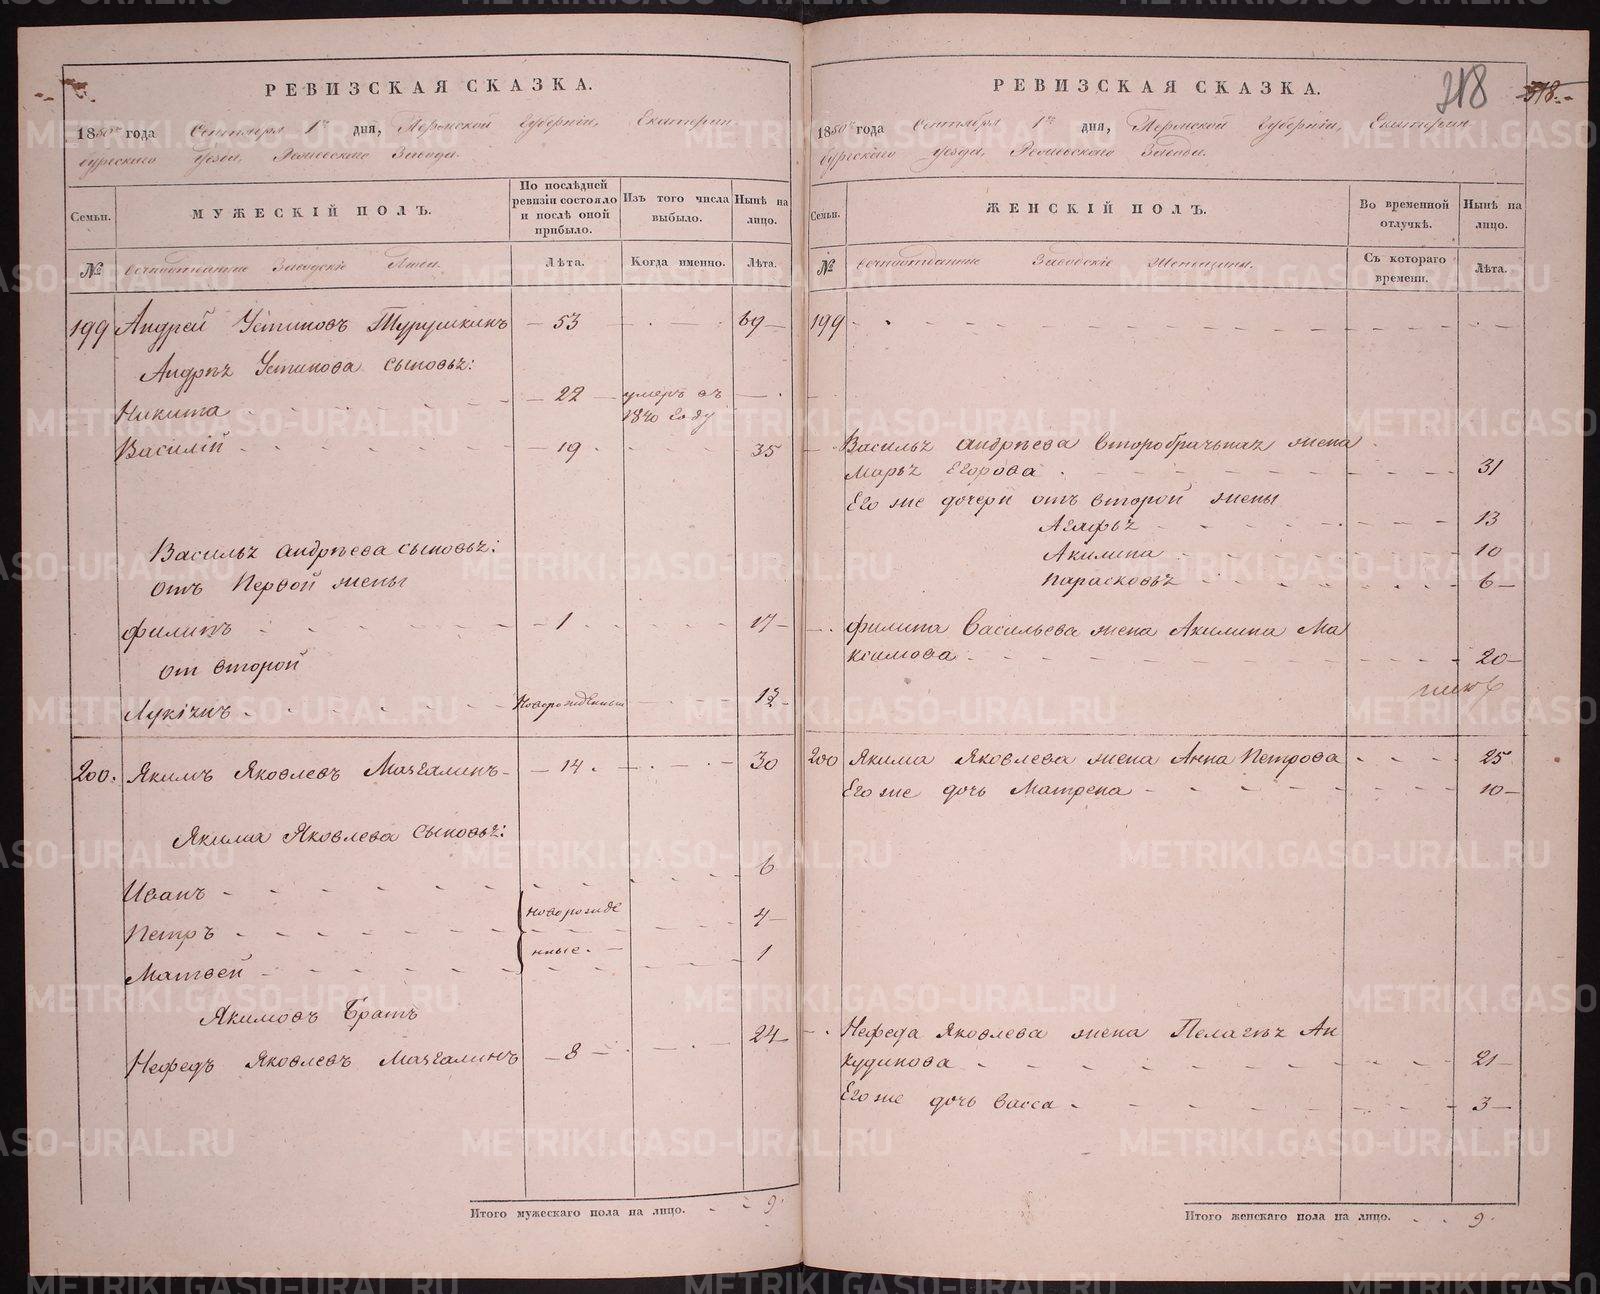 РЕВИЗСКАЯ СКАЗКА.
1850го года Сентября 1го дня, Пермской Губерніи, Екатерин-
бургскаго Уезда, Завода.
Семьи.
МУЖЕСКІЙ ПОЛЪ.
По послѣдней ревизіи состояло и послѣ оной прибыло.
Изъ того числа выбыло.
Нынѣ на лицо.
№
вечноотданные Заводскіе Люди.
Лѣта.
Когда именно.
Лѣта.
199 Андрей Устиновъ Турушкинъ 53 69
Андрѣя Устинова сыновья:
Никита 22 умеръ въ 1840 году
Василій 19 35
Василья Андрѣева сыновья:
отъ Первой жены
Филипъ 1 17
от второй
Лукіянъ Новорожденный 12
200. Якимъ Яковлевъ Мангалинъ 14 30
Якима Яковлева сыновья:
Иванъ новорожде 6
Петръ 4
Матвей нные. 1
Якимовъ Братъ
Нефедъ Яковлевъ Мангалинъ 8 24
Итого мужескаго пола на лицо. 9.
РЕВИЗСКАЯ СКАЗКА.
318
318.
1850го года Сентября 1го дня, Пермской Губерніи, Екатерин
бургскаго уезда, Завода.
Семьи.
ЖЕНСКІЙ ПОЛЪ.
Во временной отлучкѣ.
Нынѣ на лицо.
№
вечноотданные Заводскіе Женщины.
Съ котораго времени.
Лѣта.
199
Василья андрѣева второбрачная жена
Марья Егорова 31
Его же дочери отъ второй жены
Агафья 13
Акилина 10
Парасковья 6
Филипа Васильева жена Акилина Ма
ксимова 20
200 Якима Яковлева жена Анна Петрова 25
Его же дочь Матрена 10
Нефеда Яковлева жена Пелагея Ан
кудинова 21
Его же дочь Васса 3
Итого женскаго пола на лицо. 9.
METRIKI.GASO-URAL.RU